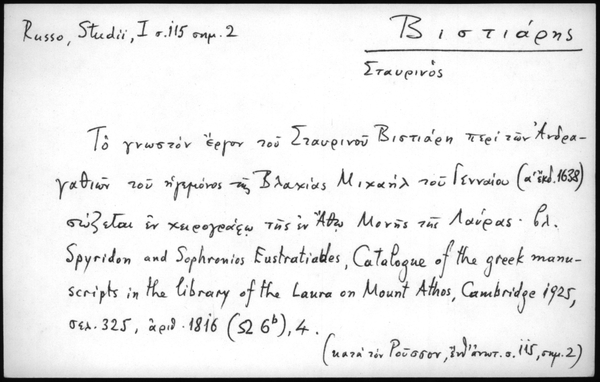 Russo, Studii, I σ. 115 σημ. 2
Βιστιάρης
Σταυρινὸς
Τὸ γνωστὸν ἔργον τοῦ Σταυρινοῦ Βιστιάρη περὶ τῶν Ἀνδρα-
γαθιῶν τοῦ ἡγεμόνος τῆς Βλαχίας Μιχαὴλ τοῦ Γενναίου (α' ἔκδ. 1638)
σώζεται ἐν χειρογράφῳ τῆς ἐν Ἄθῳ Μονῆς τῆς Λαύρας· βλ.
Spyridon and Sophronios Eustratiades, Catalogue of the greek manu-
scripts in the library of the Laura on Mount Athos, Cambridge 1925,
σελ. 325, ἀριθ. 1816 (Ω 6ᵇ), 4.
(κατὰ τὸν Ροῦσσον, ἔνθ' ἀνωτ. σ. 115, σημ. 2)